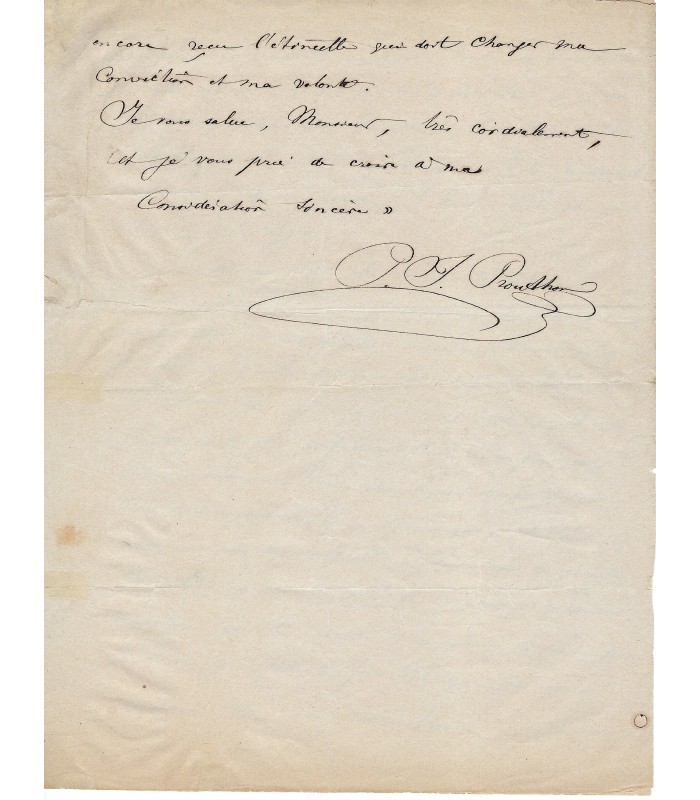 encore reçu l'étincelle qui doit changer ma
conviction et ma volonté.
Je vous salue, Monsieur, très cordialement,
et je vous prie de croire à ma
considération sincère »
P. J. Proudhon